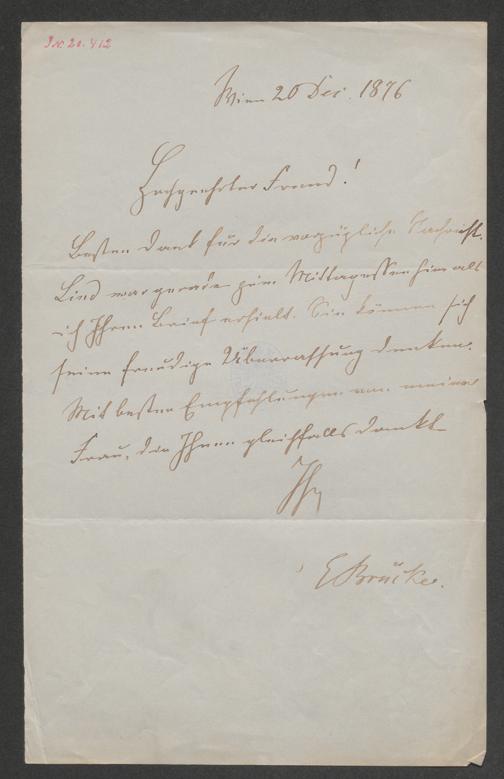 IN. 20.412
Wien 20 Dec. 1876
Hochgeehrter Freund!
Besten Dank für die vorzügliche Nachricht.
Lind war gerade zum Mittagessen hier als
ich Ihren Brief erhielt. Sie können sich
seine freudige Überraschung denken.
Mit besten Empfehlungen von meiner
Frau, die Ihnen gleichfalls dankt
Ihr
E Brücke.